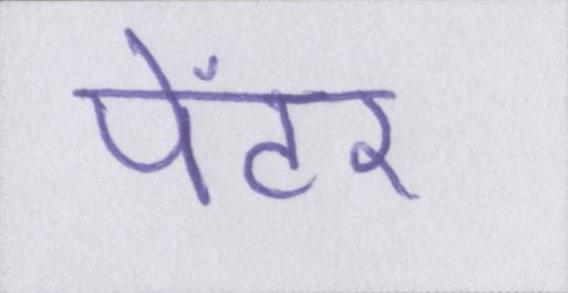 पेंटर